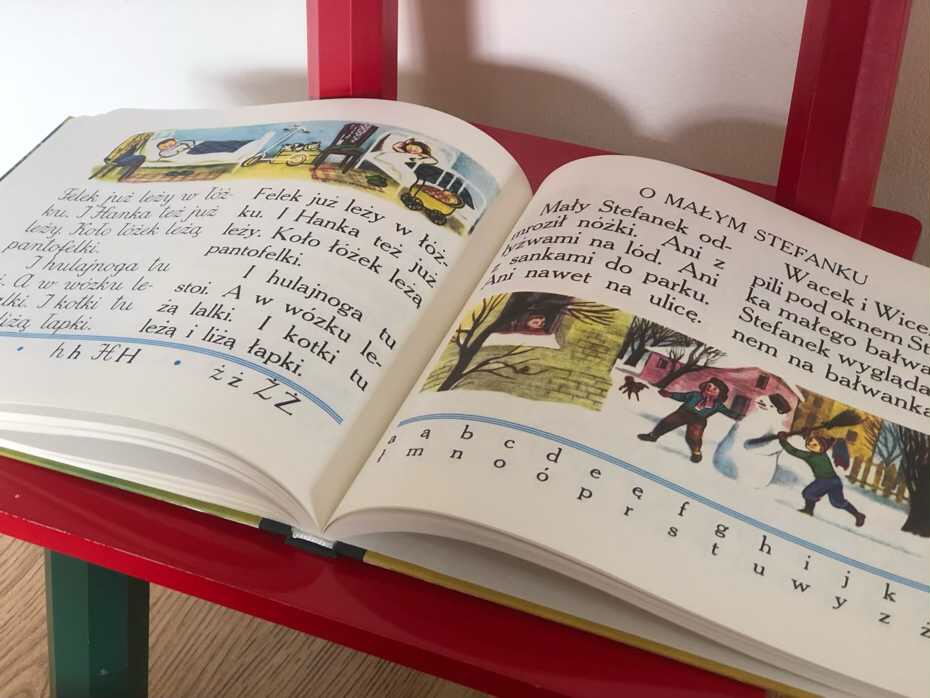 Felek już leży w łóż-
ku. I Hanka też już
leży. Koło łóżek leżą
pantofelki.
I hulajnoga tu
A w wózku le-
I kotki tu
liżą łapki.
Felek już leży w łóż-
ku. I Hanka też już
leży. Koło łóżek leżą
pantofelki.
I hulajnoga tu
stoi. A w wózku le-
żą lalki. I kotki tu
leżą i liżą łapki.
h h H H
ż ż Ż Ż
O MAŁYM STEFANKU
Mały Stefanek od-
mroził nóżki. Ani z
łyżwami na lód. Ani
z sankami do parku.
Ani nawet na ulicę.
Wacek i Wice
pili pod oknem St
ka małego bałwa
Stefanek wygląda
nem na bałwanka
a ą b c d e ę f g h i j k
ł m n o ó p r s t u w y z ż